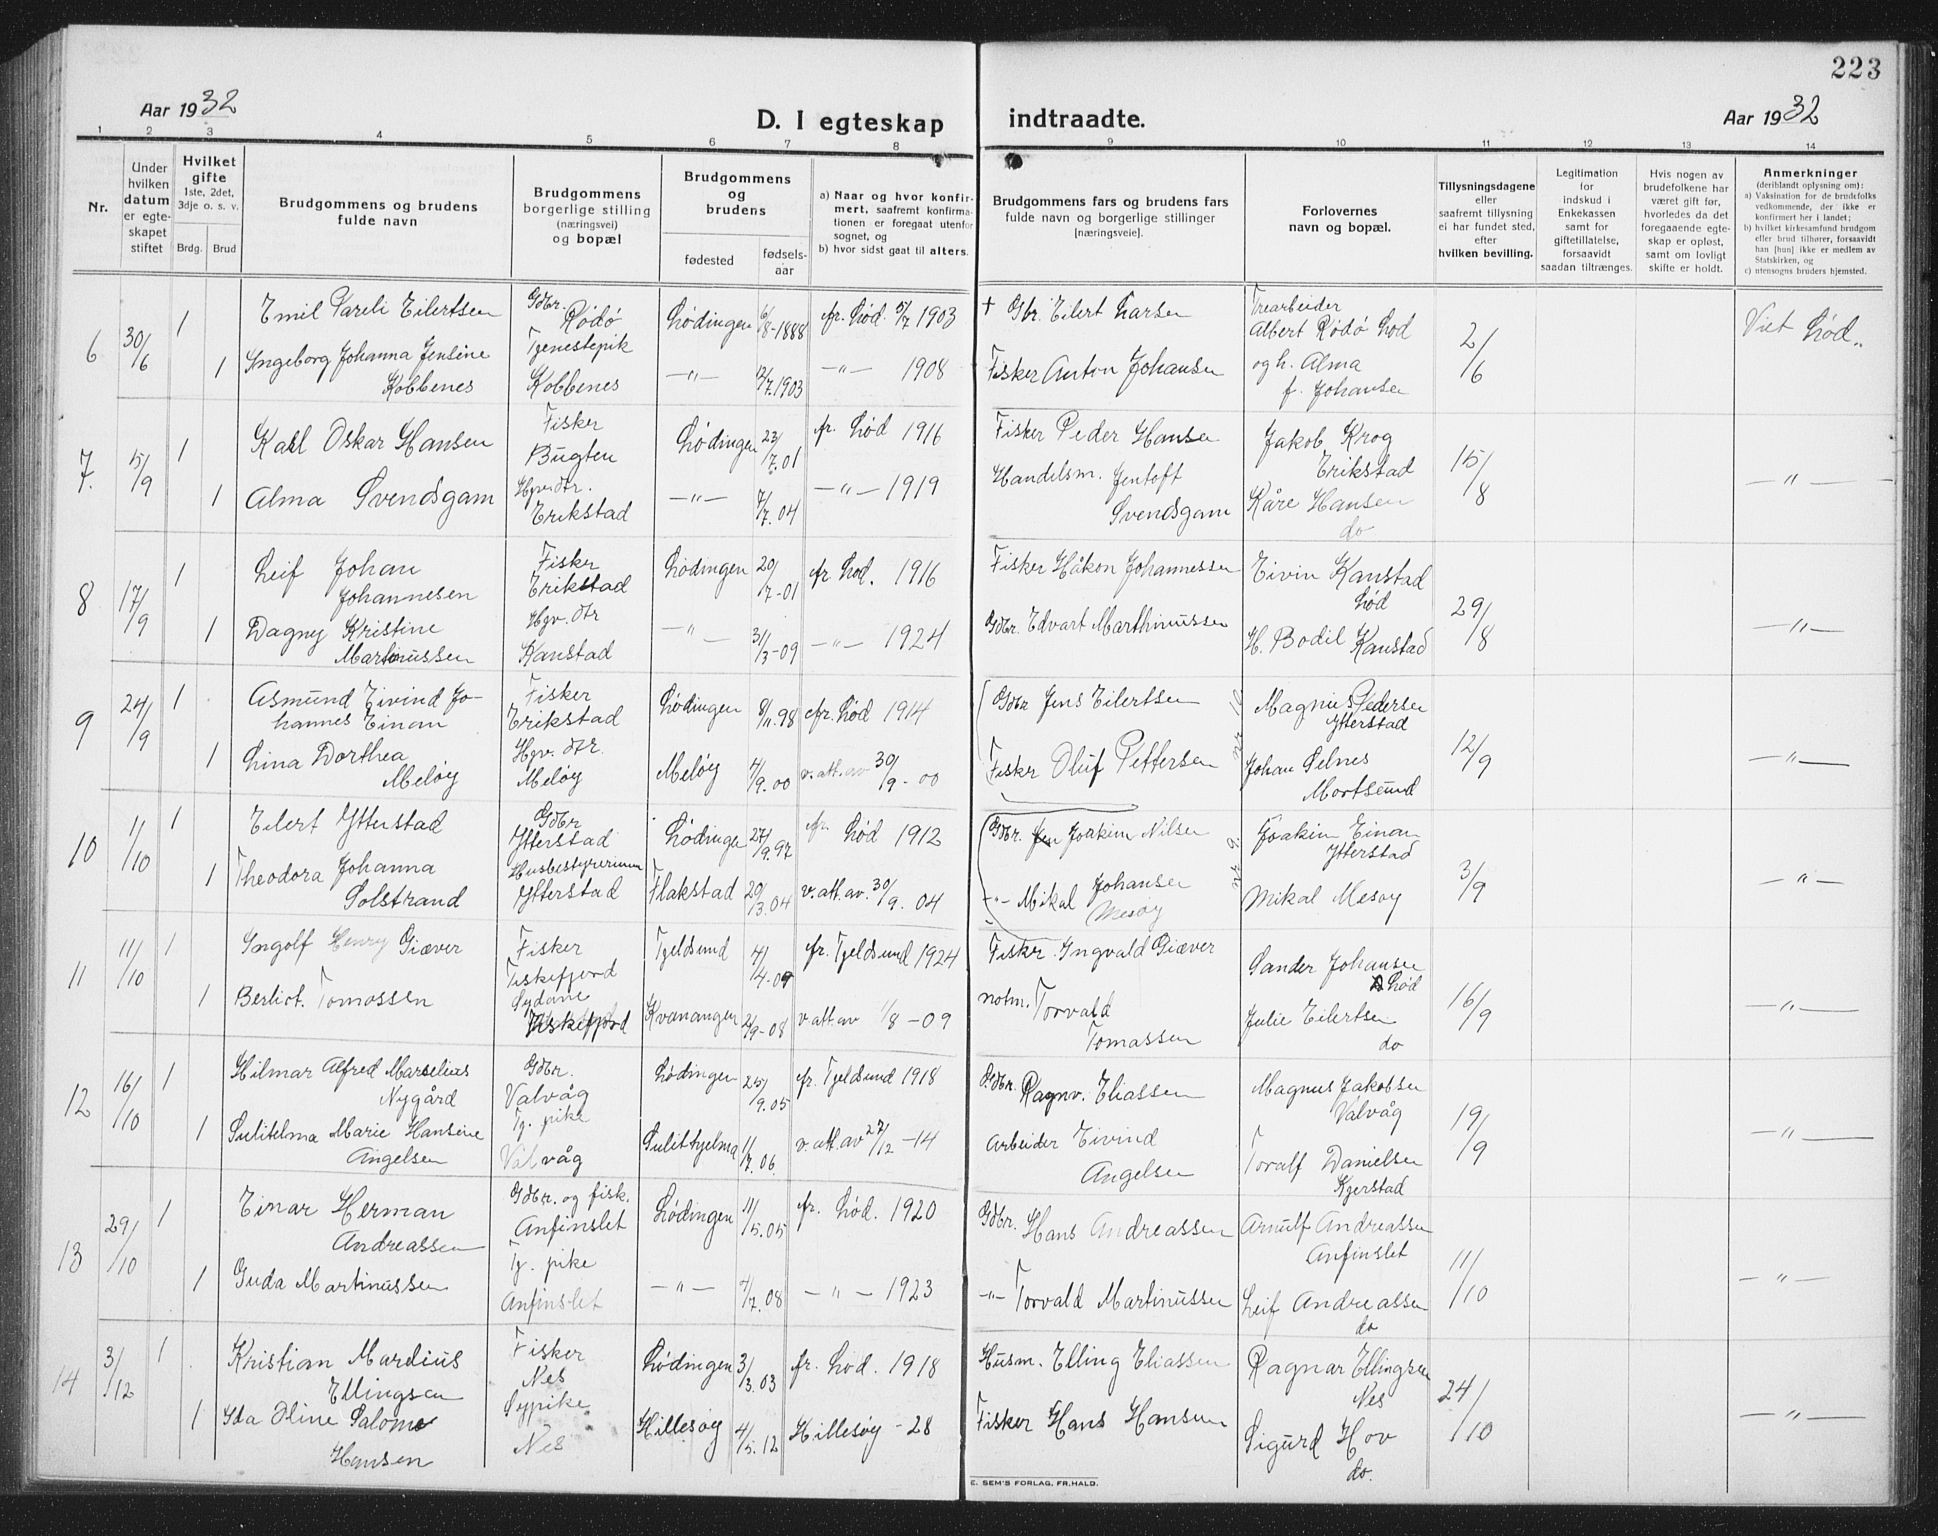 223
Aar 1932
D. I egteskap indtraadte.
Aar 1932
1 2 3 4 5 6 7 8 9 10 11 12 13 14
Nr.
Under hvilken datum er egteskapet stiftet
Hvilket gifte 1ste, 2det, 3dje o. s. v.
Brdg. Brud
Brudgommens og brudens fulde navn
Brudgommens borgerlige stilling (næringsvei) og bopæl
Brudgommens og brudens
fødested
fødselsaar
a) Naar og hvor konfirmert, saafremt konfirmationen er foregaat utenfor sognet, og
b) hvor sidst gaat til alters.
Brudgommens fars og brudens fars fulde navn og borgerlige stillinger [næringsveie].
Forlovernes navn og bopæl.
Tillysningsdagene eller saafremt tillysning ei har fundet sted, efter hvilken bevilling.
Legitimation for indskud i Enkekassen samt for giftetillatelse, forsaavidt saadan tiltrænges.
Hvis nogen av brudefolkene har været gift før, hvorledes da det foregaaende egteskap er opløst, samt om lovligt skifte er holdt.
Anmerkninger (deriblandt oplysning om):
a) Vaksination for de brudefolks vedkommende, der ikke er konfirmert her i landet;
b) hvilket kirkesamfund brudgom eller brud tilhører, forsaavidt han [hun] ikke er medlem av Statskirken, og
c) utensogns bruders hjemsted.
6 30/6 1 Emil Pareli Eilertsen Gdbr. Rödö Lødingen 6/8-1888 fr. Lød 5/7 1903 + Gbr. Eilert Larsen Trearbeider Albert Rødø Lød 2/6 Viet Lød.
1 Ingeborg Johanna Jensine Kobbenes Tjenestepik Kobbenes —"— 12/7.1903 —"— 1908 Fisker Anton Johansen og h. Alma f. Johansen
7. 5/9 1 Karl Oskar Hansen Fisker Bugten Lødingen 23/7.01 fr. Lød 1916 Fisker Peder Hansen Jakob Krog Erikstad 15/8 —"—
1 Alma Svendsgam Hgv. dtr. Erikstad —"— 7/7.04 —"— 1919 Handelsm. Jentoft Svendsgam Kåre Hansen do
8 17/9 1 Leif Johan Johannesen Fisker Erikstad Lødingen 20/7-01 fr Lød. 1916 Fisker Håkon Johannessen Eivin Kanstad Lød 29/8 —"—
1 Dagny Kristine Martinussen Hgv. dtr Kanstad —"— 31/3-09 —"— 1924 Gdbr. Edvart Marthinussen H. Bodil Kanstad
9 24/9 1 Asmund Eivind Johannes Einan Fisker Erikstad Lødingen 8/11.98 fr. Lød 1914 Gdbr Jens Eilertsen Magnus Pedersen Ytterstad 12/9 —"—
1 Lina Dorthea Meløy Hgv. dtr. Meløy Meløy 7/9.00 v. att. av 30/9-00 Fisker Oluf Pettersen Johan Selnes Mortsund
10 11/10 1 Eilert Ytterstad Gdbr Ytterstad Lødingen 27/9.97 fr. Lød 1912 Gdbr. Joakim Nilsen Joakim Einan Ytterstad 3/9 —"—
1 Theodora Johanna Solstrand Husbestyrerinne Ytterstad Flakstad 20/3.04 v. att. av. 30/9.04 —"— Mikal Johansen Mesøy Mikal Mesøy
11 11/10 1 Ingolf Henry Giæver Fisker Fiskefjord Tjeldsund 4/4-09 fr. Tjeldsund 1924 Fisker Ingvald Giæver Sander Johansen Lød 16/9 —"—
1 Berliot. Tomassen Sydame Fiskefjord Kvænangen 2/9-08 v. att. av 1/8-09 notm. Torvald Tomassen Julie Eilertsen do
12 16/10 1 Hilmar Alfred Marselius Nygård Gdbr. Valvåg Lødingen 25/9.05 fr. Tjeldsund 1918 Gdbr. Ragnv. Eliassen Magnus Jakobsen Valvåg 19/9 —"—
1 Sulitelma Marie Hansine Angelsen Tj. pike Valvåg Sulithjelma 1/7.06. v. att. av 27/12-14 Arbeider Eivind Angelsen Toralf Danielsen Kjerstad
13 29/10 1 Einar Herman Andreassen Gdbr. og fisk. Anfinslet Lødingen 11/5.05 fr. Lød. 1920 Gdbr. Hans Andreassen Arnulf Andreassen Anfinslet 11/10 —"—
1 Guda Martinussen Tj. pike Anfinslet —"— 7/7.08 —"— 1923 —"— Torvald Martinussen Leif Andreassen do
14 3/12 1 Kristian Mardius Ellingsen Fisker Nes Lødingen 3/3.03 fr. Lød. 1918 Husm. Elling Eliassen Ragnar Ellingsen Nes 24/10 —"—
1 Ida Oline Salome Hansen Sypike Nes Hillesøy 4/5.12 Hillesøy -28 Fisker Hans Hansen Sigurd Hov do.
E. SEM'S FORLAG, FR.HALD.